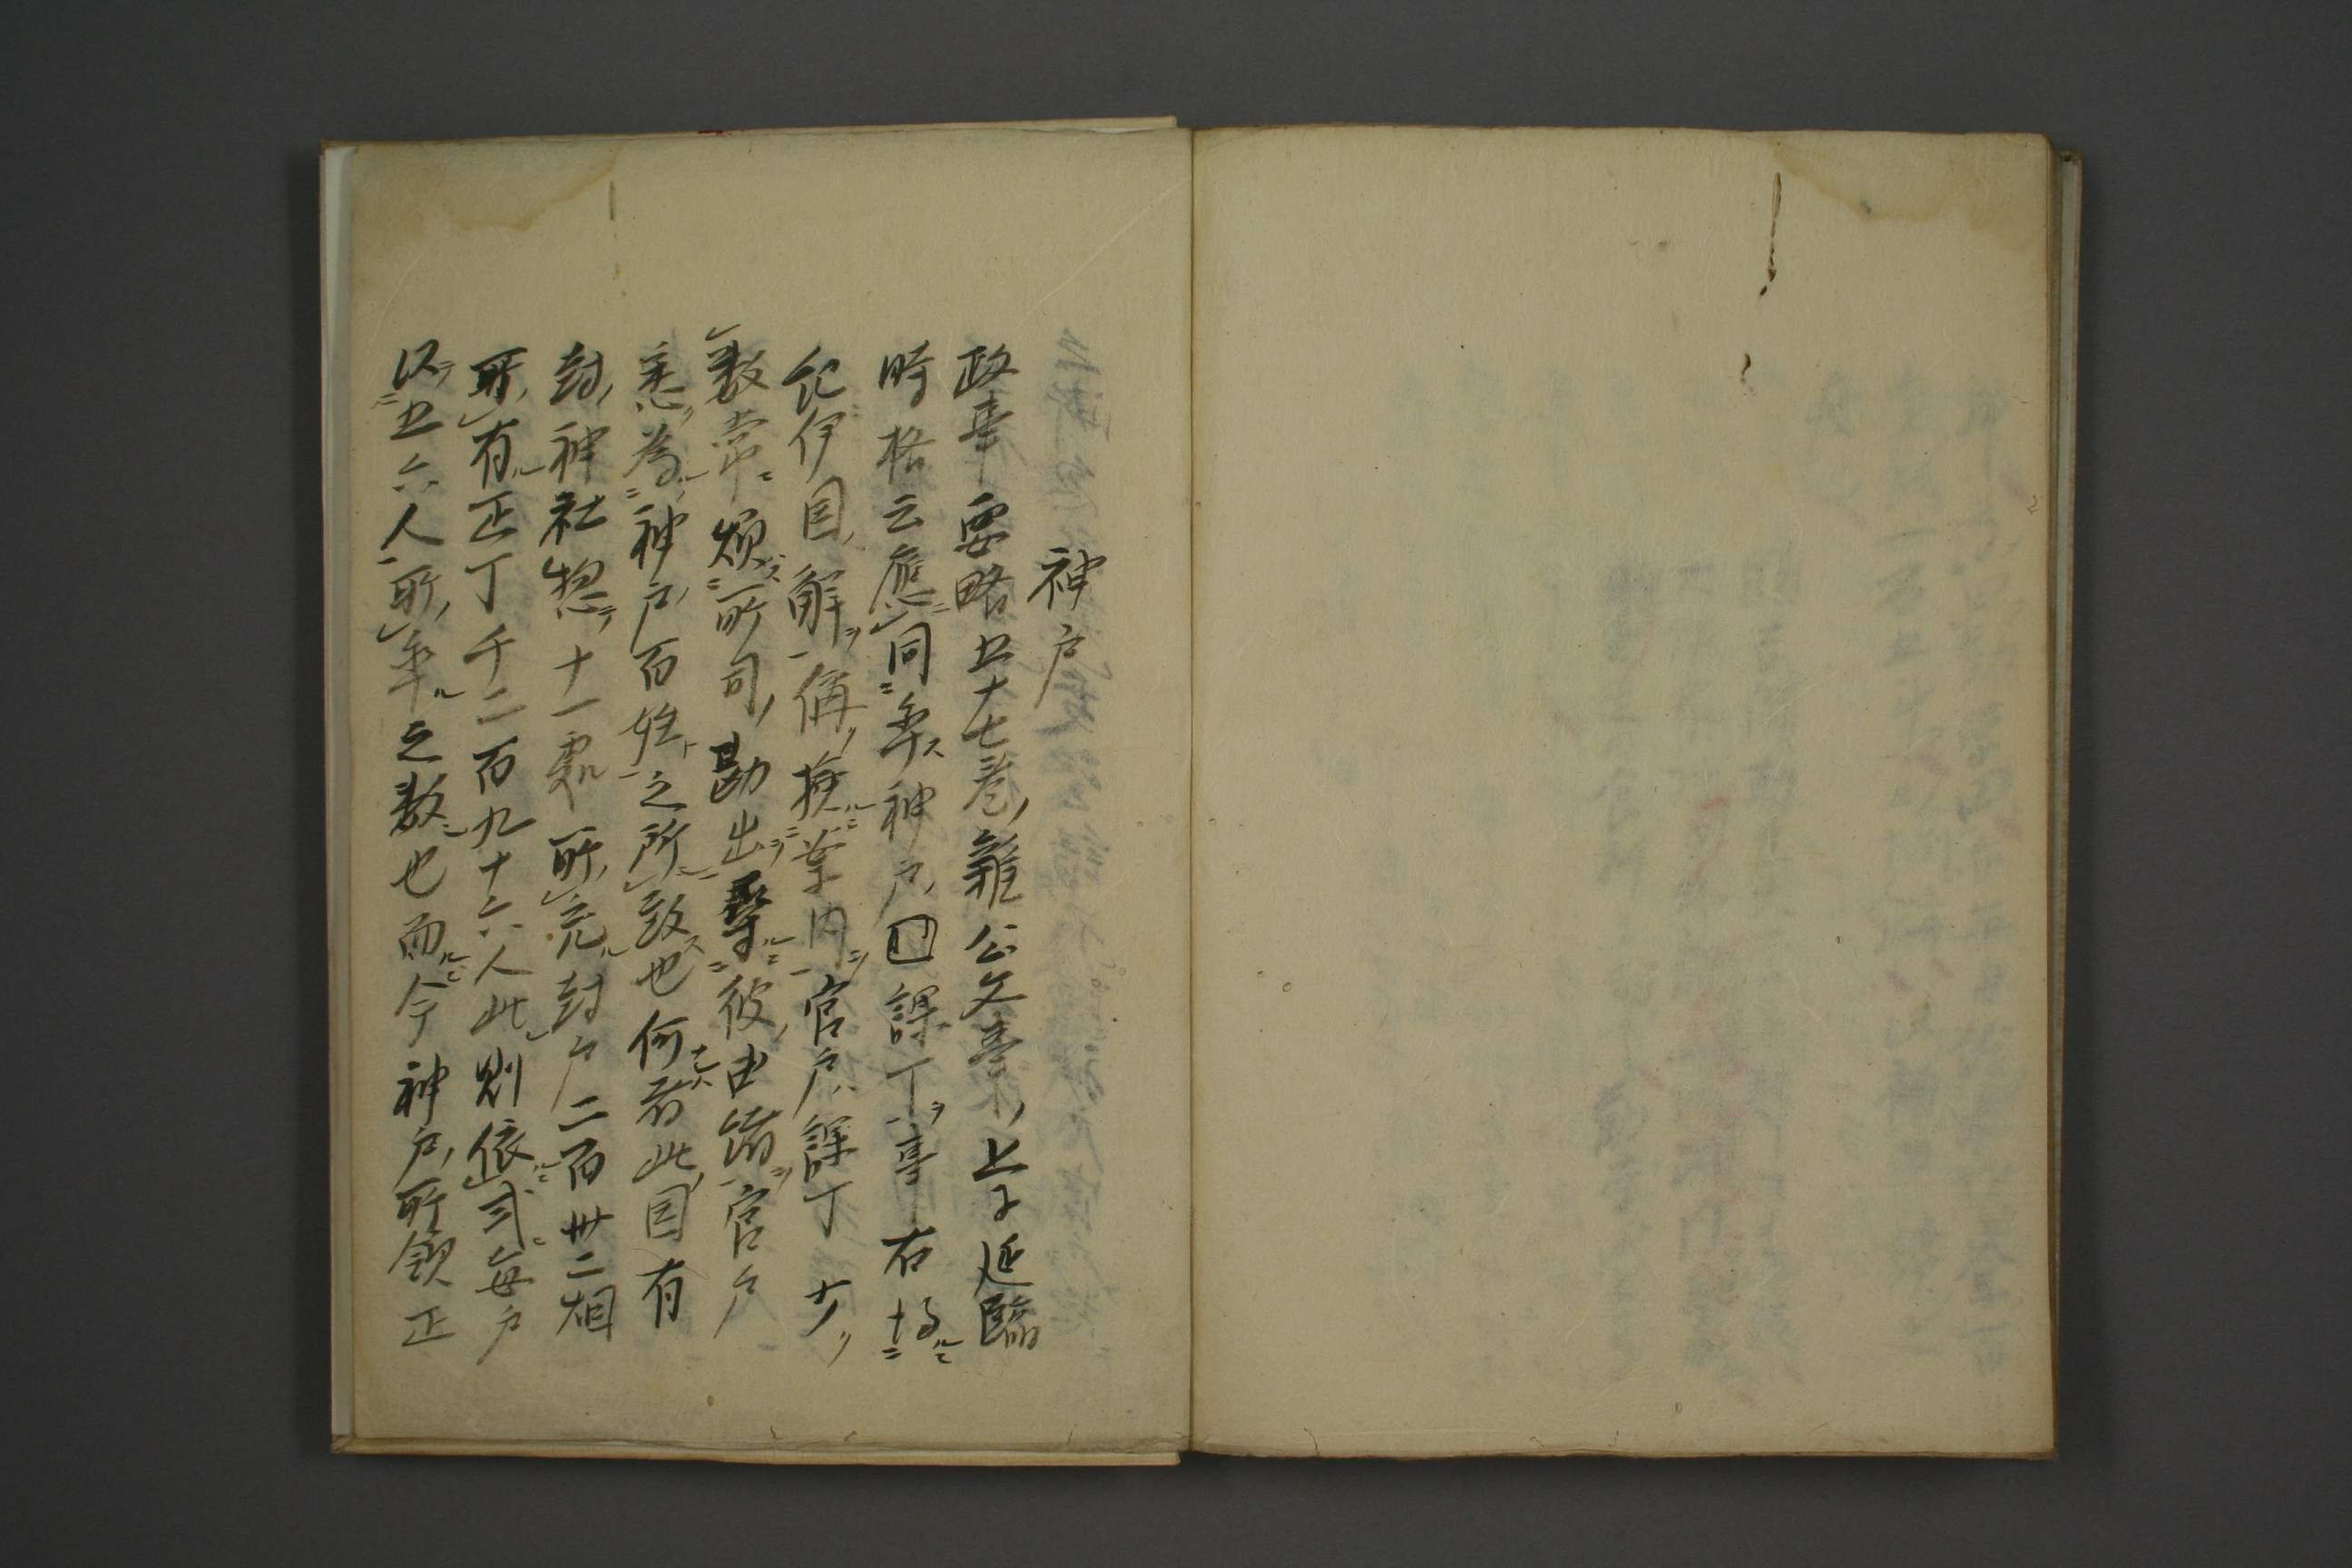 神戸
政事要略五十七巻雑公文事上ニ延臨
時格云應同率神戸課丁事右得
紀伊国解偁撿案内官戸課丁少
数常煩所司勘出尋彼由緒官戸
悉為神戸百姓之所致也何者此国有
封神社惣十一處所充封戸二百卅二烟
所有正丁千二百九十六人此則依式毎戸
以五六人所率之数也而今神戸所領正